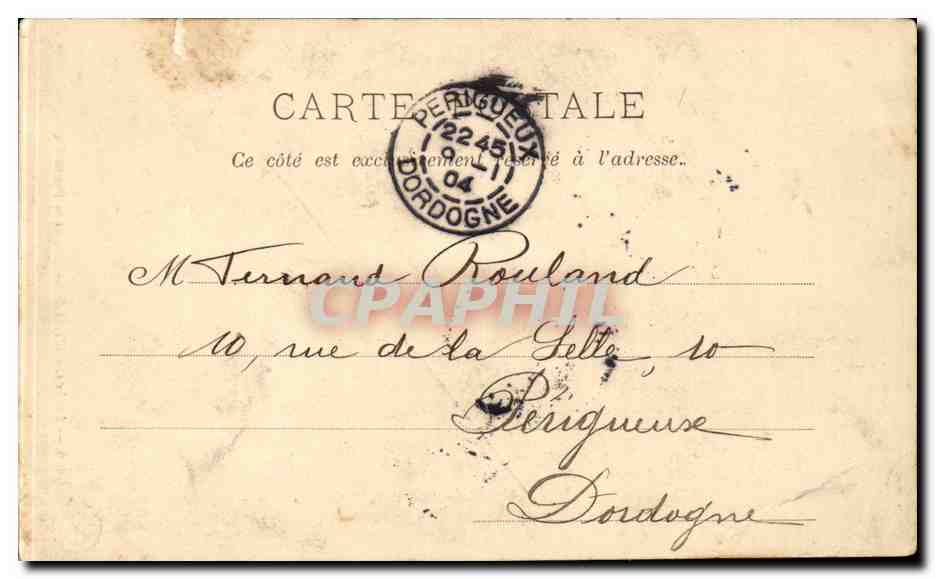 CARTE POSTALE
Ce côté est exclusivement réservé à l'adresse.
PERIGUEUX
22 45
9 -1
04
DORDOGNE
M Fernand Rouland
CPAPHIL
10, rue de la Selle, 10
Périgueux
Dordogne